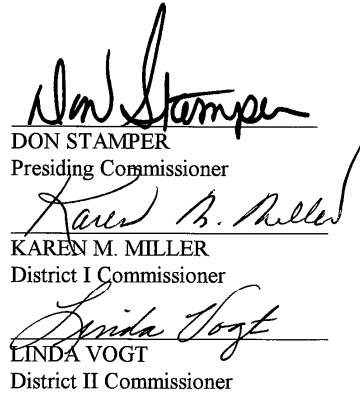 Don Stamper
DON STAMPER
Presiding Commissioner
Karen M. Miller
KAREN M. MILLER
District I Commissioner
Linda Vogt
LINDA VOGT
District II Commissioner